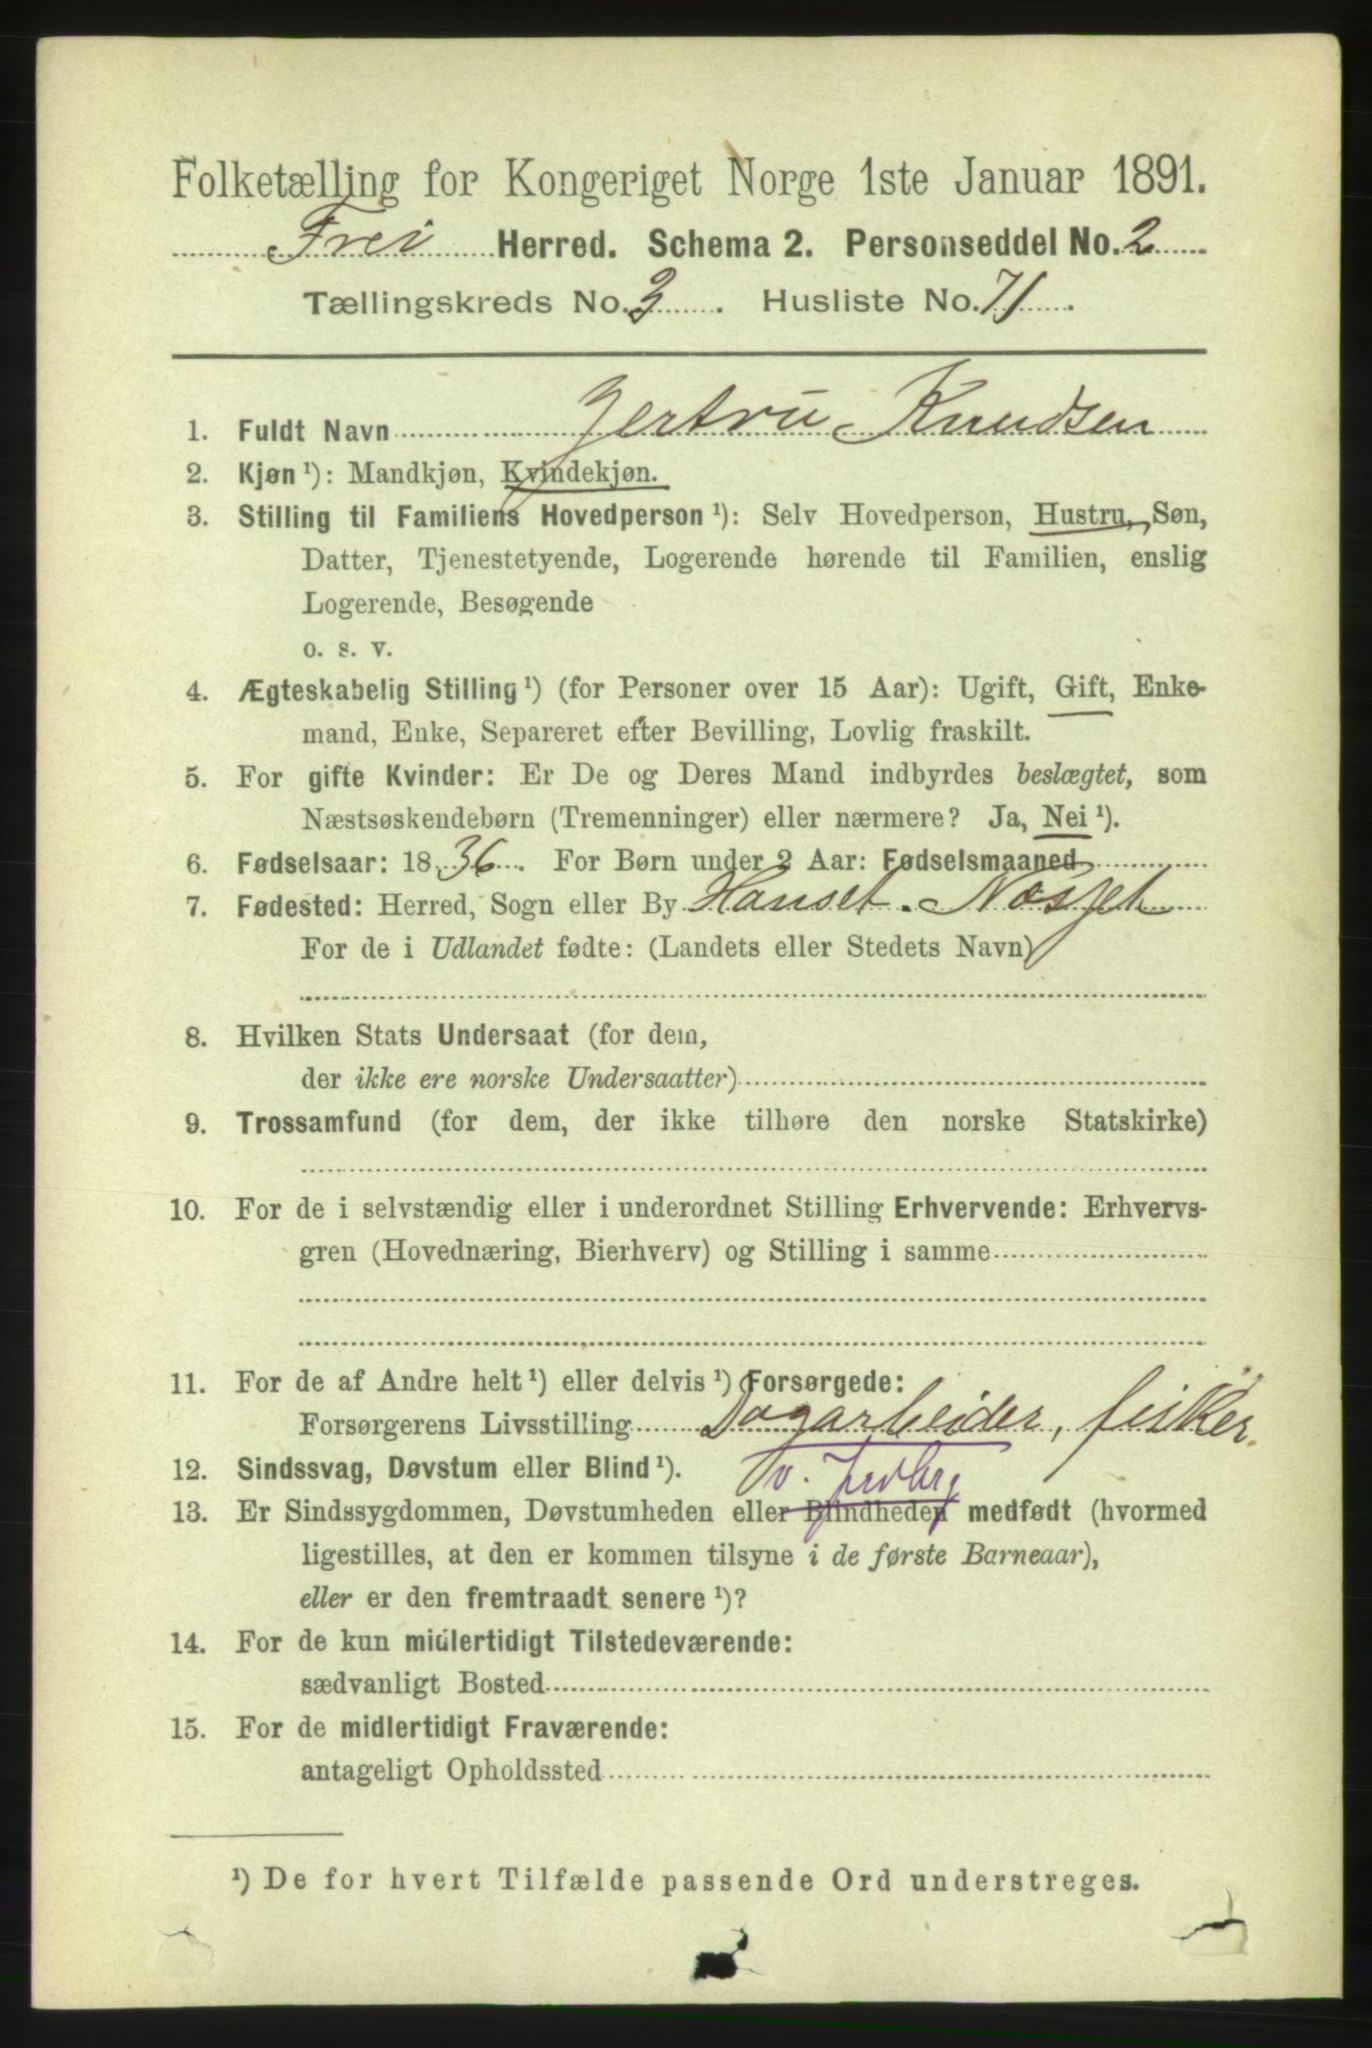 Folketælling for Kongeriget Norge 1ste Januar 1891.
Frei Herred. Schema 2. Personseddel No. 2
Tællingskreds No. 3. Husliste No. 71.
1. Fuldt Navn Jertru Knudsen
2. Kjøn ¹): Mandkjøn, Kvindekjøn.
3. Stilling til Familiens Hovedperson ¹): Selv Hovedperson, Hustru, Søn,
Datter, Tjenestetyende, Logerende hørende til Familien, enslig
Logerende, Besøgende
o. s. v.
4. Ægteskabelig Stilling ¹) (for Personer over 15 Aar): Ugift, Gift, Enke-
mand, Enke, Separeret efter Bevilling, Lovlig fraskilt.
5. For gifte Kvinder: Er De og Deres Mand indbyrdes beslægtet, som
Næstsøskendebørn (Tremenninger) eller nærmere? Ja, Nei ¹).
6. Fødselsaar: 1836. For Børn under 2 Aar: Fødselsmaaned
7. Fødested: Herred, Sogn eller By Hanset.
For de i Udlandet fødte: (Landets eller Stedets Navn)
8. Hvilken Stats Undersaat (for dem,
der ikke ere norske Undersaatter)
9. Trossamfund (for dem, der ikke tilhøre den norske Statskirke)
10. For de i selvstændig eller i underordnet Stilling Erhvervende: Erhvervs-
gren (Hovednæring, Bierhverv) og Stilling i samme
11. For de af Andre helt ¹) eller delvis ¹) Forsørgede:
Forsørgerens Livsstilling Dagarbeider, fisker.
12. Sindssvag, Døvstum eller Blind ¹). v. jrdbrg
13. Er Sindssygdommen, Døvstumheden eller Blindheden medfødt (hvormed
ligestilles, at den er kommen tilsyne i de første Barneaar),
eller er den fremtraadt senere ¹)?
14. For de kun midlertidigt Tilstedeværende:
sædvanligt Bosted
15. For de midlertidigt Fraværende:
antageligt Opholdssted
¹) De for hvert Tilfælde passende Ord understreges.